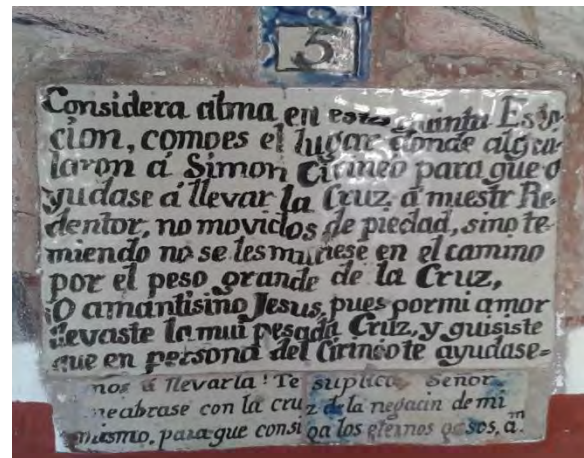 5
Considera alma en esta quinta Esta-
cion, como es el lugar donde alqui-
laron á Simon Cirineo para que a
yudase á llevar la Cruz, á nuestr Re-
dentor, no movidos de piedad, sino te-
miendo no se les muriese en el camino
por el peso grande de la Cruz,
O amantisimo Jesus, pues por mi amor
llevaste la mui pesada Cruz, y quisiste
que en persona del Cirineo te ayudase=
mos á llevarla! Te suplico, Señor
me abrase con la cruz de la negacin de mi
mismo, para que consiga los eternos gosos, am̃.